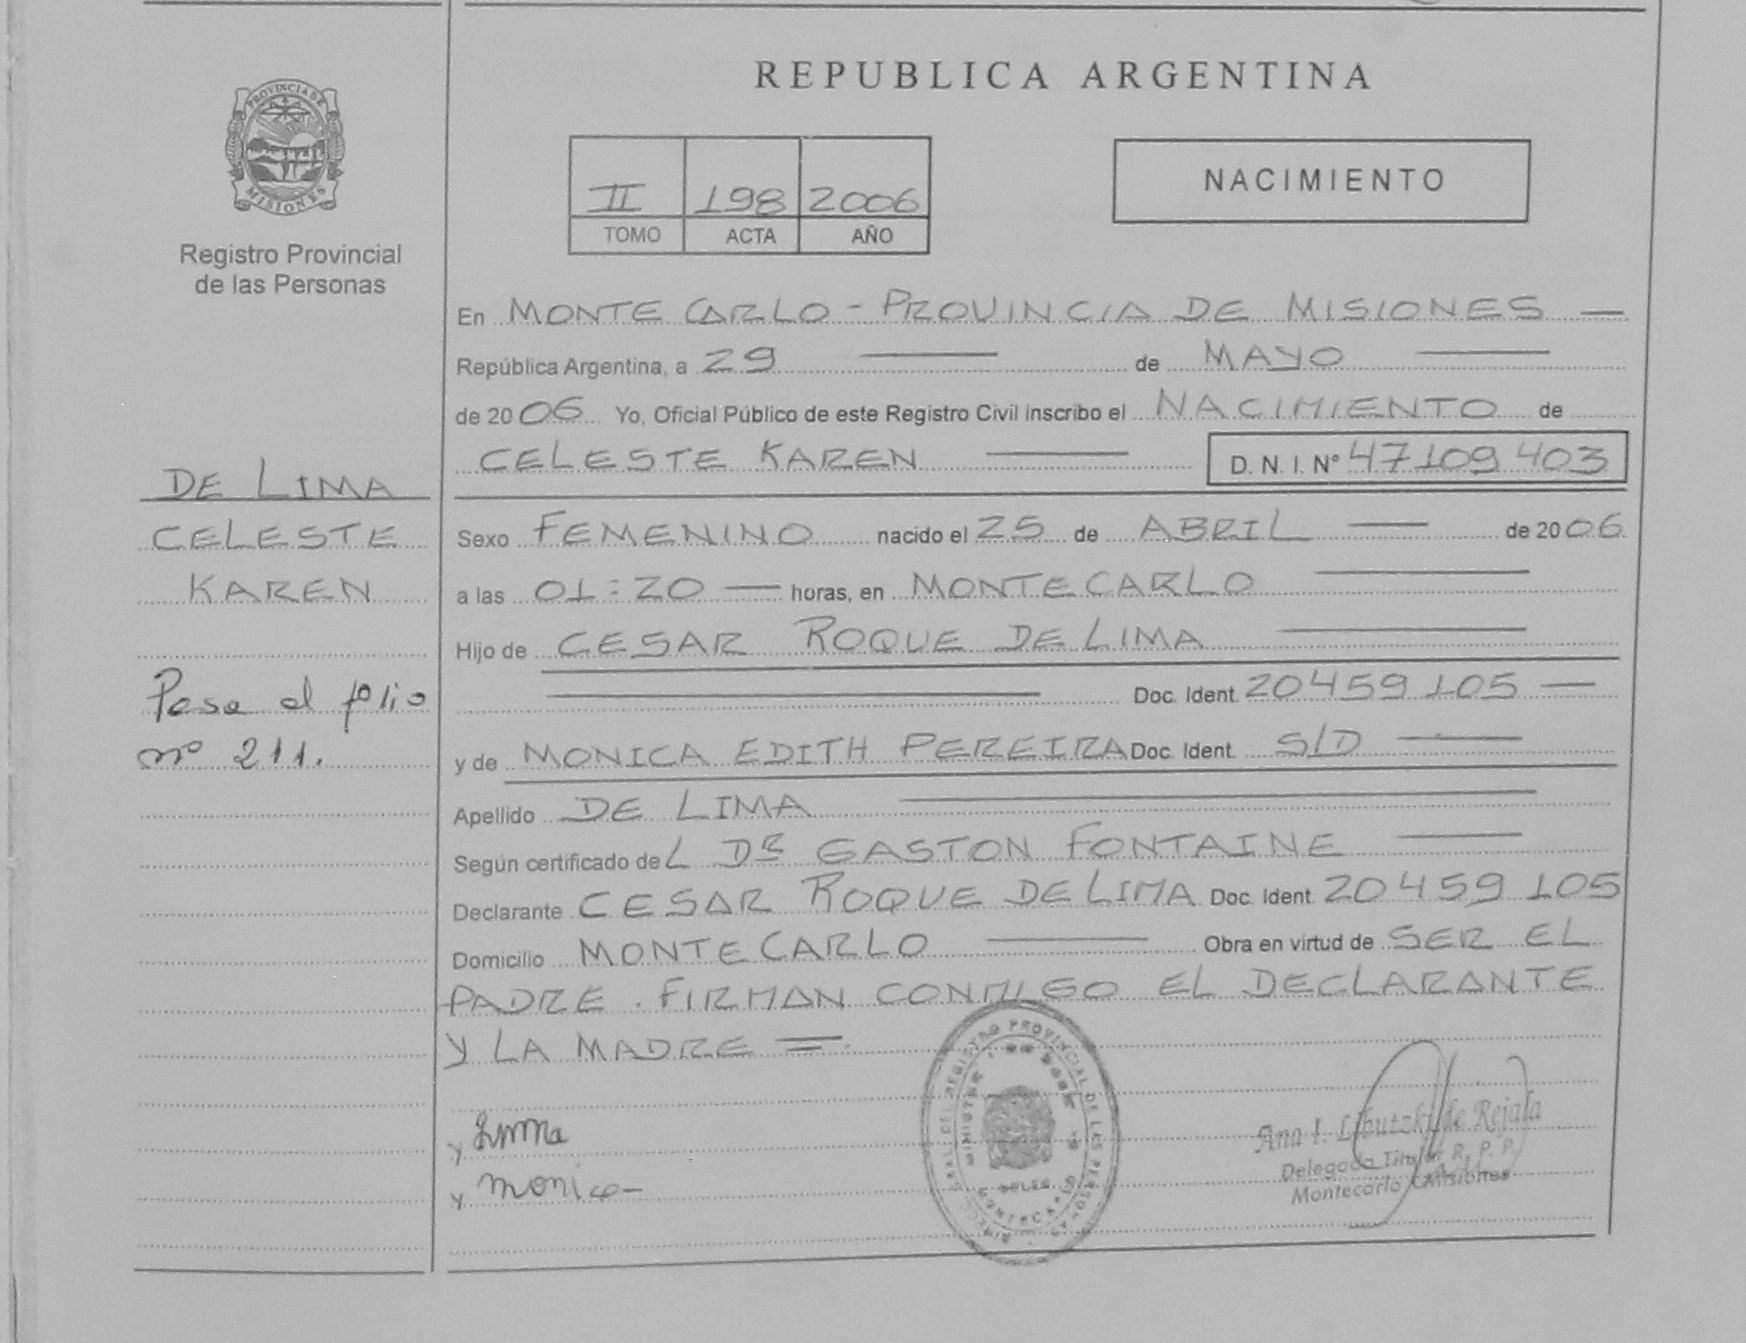 REPUBLICA ARGENTINA
PROVINCIA DE
MISIONES
Registro Provincial
de las Personas
II 198 2006
TOMO ACTA AÑO
NACIMIENTO
En MONTE CARLO - PROVINCIA DE MISIONES —
República Argentina, a 29 — de MAYO —
de 2006 Yo, Oficial Público de este Registro Civil inscribo el NACIMIENTO de
CELESTE KAREN — D. N. I. Nº 47109403
DE LIMA
CELESTE
KAREN
Pasa al folio
nº 211.
Sexo FEMENINO nacido el 25 de ABRIL — de 2006
a las 01:20 — horas, en MONTECARLO —
Hijo de CESAR ROQUE DE LIMA —
— Doc. Ident. 20459105 —
y de MONICA EDITH PEREIRA Doc. Ident. S/D —
Apellido DE LIMA —
Según certificado del Dr GASTON FONTAINE —
Declarante CESAR ROQUE DE LIMA Doc. Ident. 20459105
Domicilio MONTECARLO — Obra en virtud de SER EL
PADRE. FIRMAN CONMIGO EL DECLARANTE
Y LA MADRE =.
monica
REGISTRO PROVINCIAL DE LAS PERSONAS
Ana I. Libutzki de Rejala
Delegada Titular R. P. P.
Montecarlo Misiones